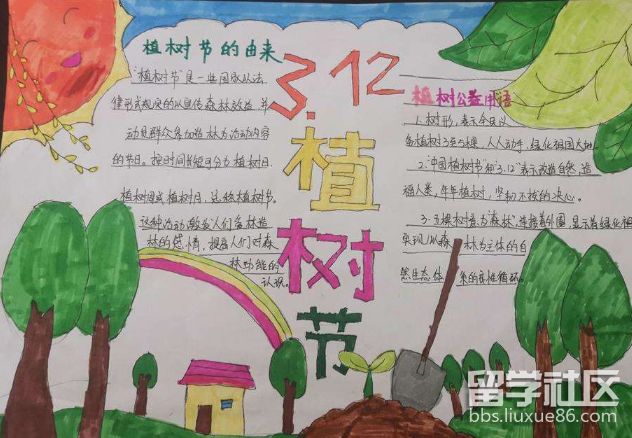 植树节的由来
"植树节"是一些国家以法
律形式规定的以宣传森林效益,并
动员群众参加造林为活动内容
的节日。按时间长短可分为植树日、
植树周或植树月,总称植树节。
这种活动,激发人们爱林造
林的感情,提高人们对森
林功能的
认识。
3.12
植
树
节
植树公益用语
1.树形,表示全民义
务植树3至5棵,人人动手,绿化祖国大地
2."中国植树节"和"3.12"表示改造自然,造
福人类,年年植树,坚韧不拔的决心。
3.五棵树可会意为"森林",连接着外圈,显示着绿化祖国
实现以森林为主体的自
然生态体系的良性循环。
留学社区
bbs.liuxue86.com